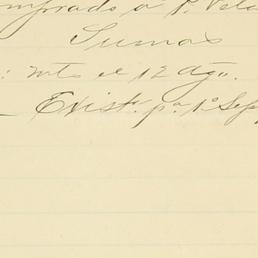 mprado a P. Vela
Sumas
: mts el 12 Ago.
Exist. pa 1o Sep